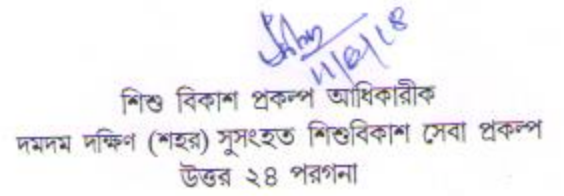 11/9/18
শিশু বিকাশ প্রকল্প আধিকারীক
দমদম দক্ষিণ (শহর) সুসংহত শিশুবিকাশ সেবা প্রকল্প
উত্তর ২৪ পরগনা